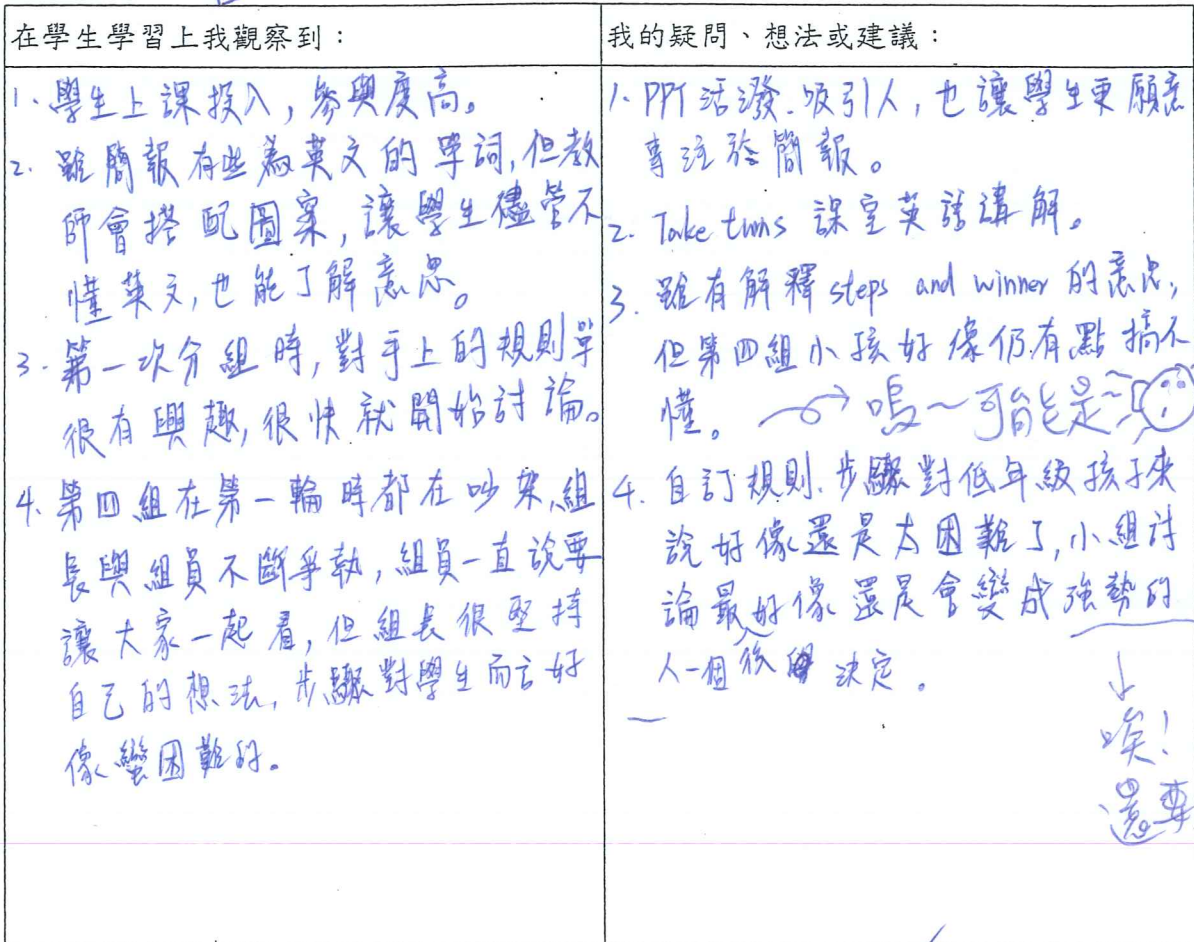 在學生學習上我觀察到：
1. 學生上課投入，參與度高。
2. 雖簡報有些為英文的單詞，但教
師會搭配圖案，讓學生儘管不
懂英文，也能了解意思。
3. 第一次分組時，對手上的規則單
很有興趣，很快就開始討論。
4. 第四組在第一輪時都在吵架，組
長與組員不斷爭執，組員一直說要
讓大家一起看，但組長很堅持
自己的想法，步驟對學生而言好
像蠻困難的。
我的疑問、想法或建議：
1. PPT 活潑、吸引人，也讓學生更願意
專注於簡報。
2. Take turns 課室英語講解。
3. 雖有解釋 steps and winner 的意思，
但第四組小孩好像仍有點搞不
懂。 → 嗚~可能是~
4. 自訂規則、步驟對低年級孩子來
說好像還是太困難了，小組討
論最好像還是會變成強勢的
人一個後 決定。
↓
唉！
還要